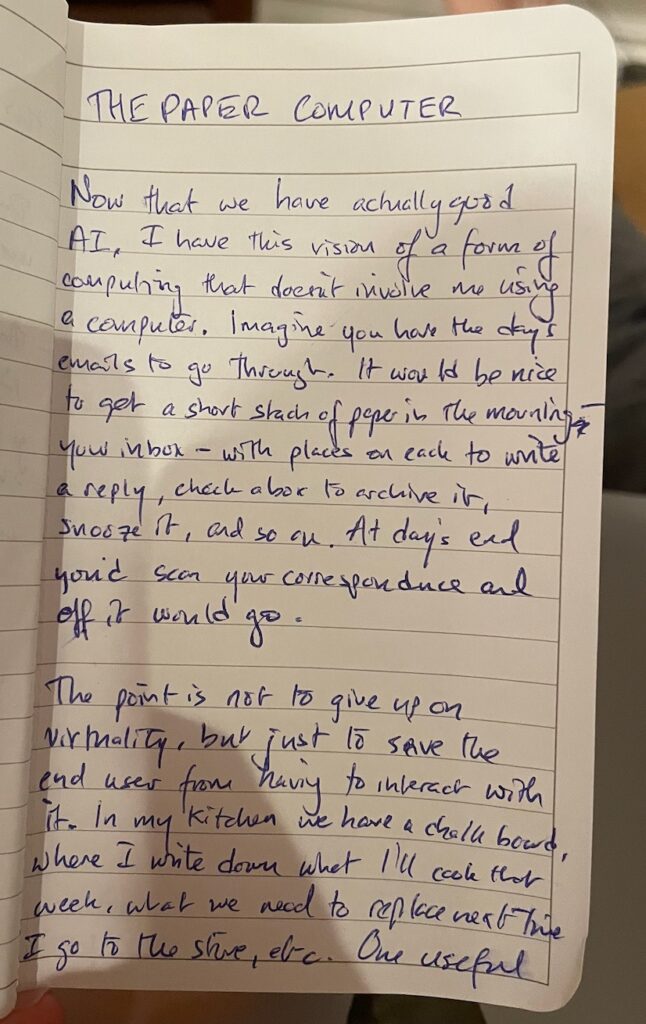 THE PAPER COMPUTER
Now that we have actually good
AI, I have this vision of a form of
computing that doesn't involve me using
a computer. Imagine you have the day's
emails to go through. It would be nice
to get a short stack of paper in the morning –
your inbox – with places on each to write
a reply, check a box to archive it,
snooze it, and so on. At day's end
you'd scan your correspondence and
off it would go.
The point is not to give up on
virtuality, but just to save the
end user from having to interact with
it. In my kitchen we have a chalk board,
where I write down what I'll cook that
week, what we need to replace next time
I go to the store, etc. One useful